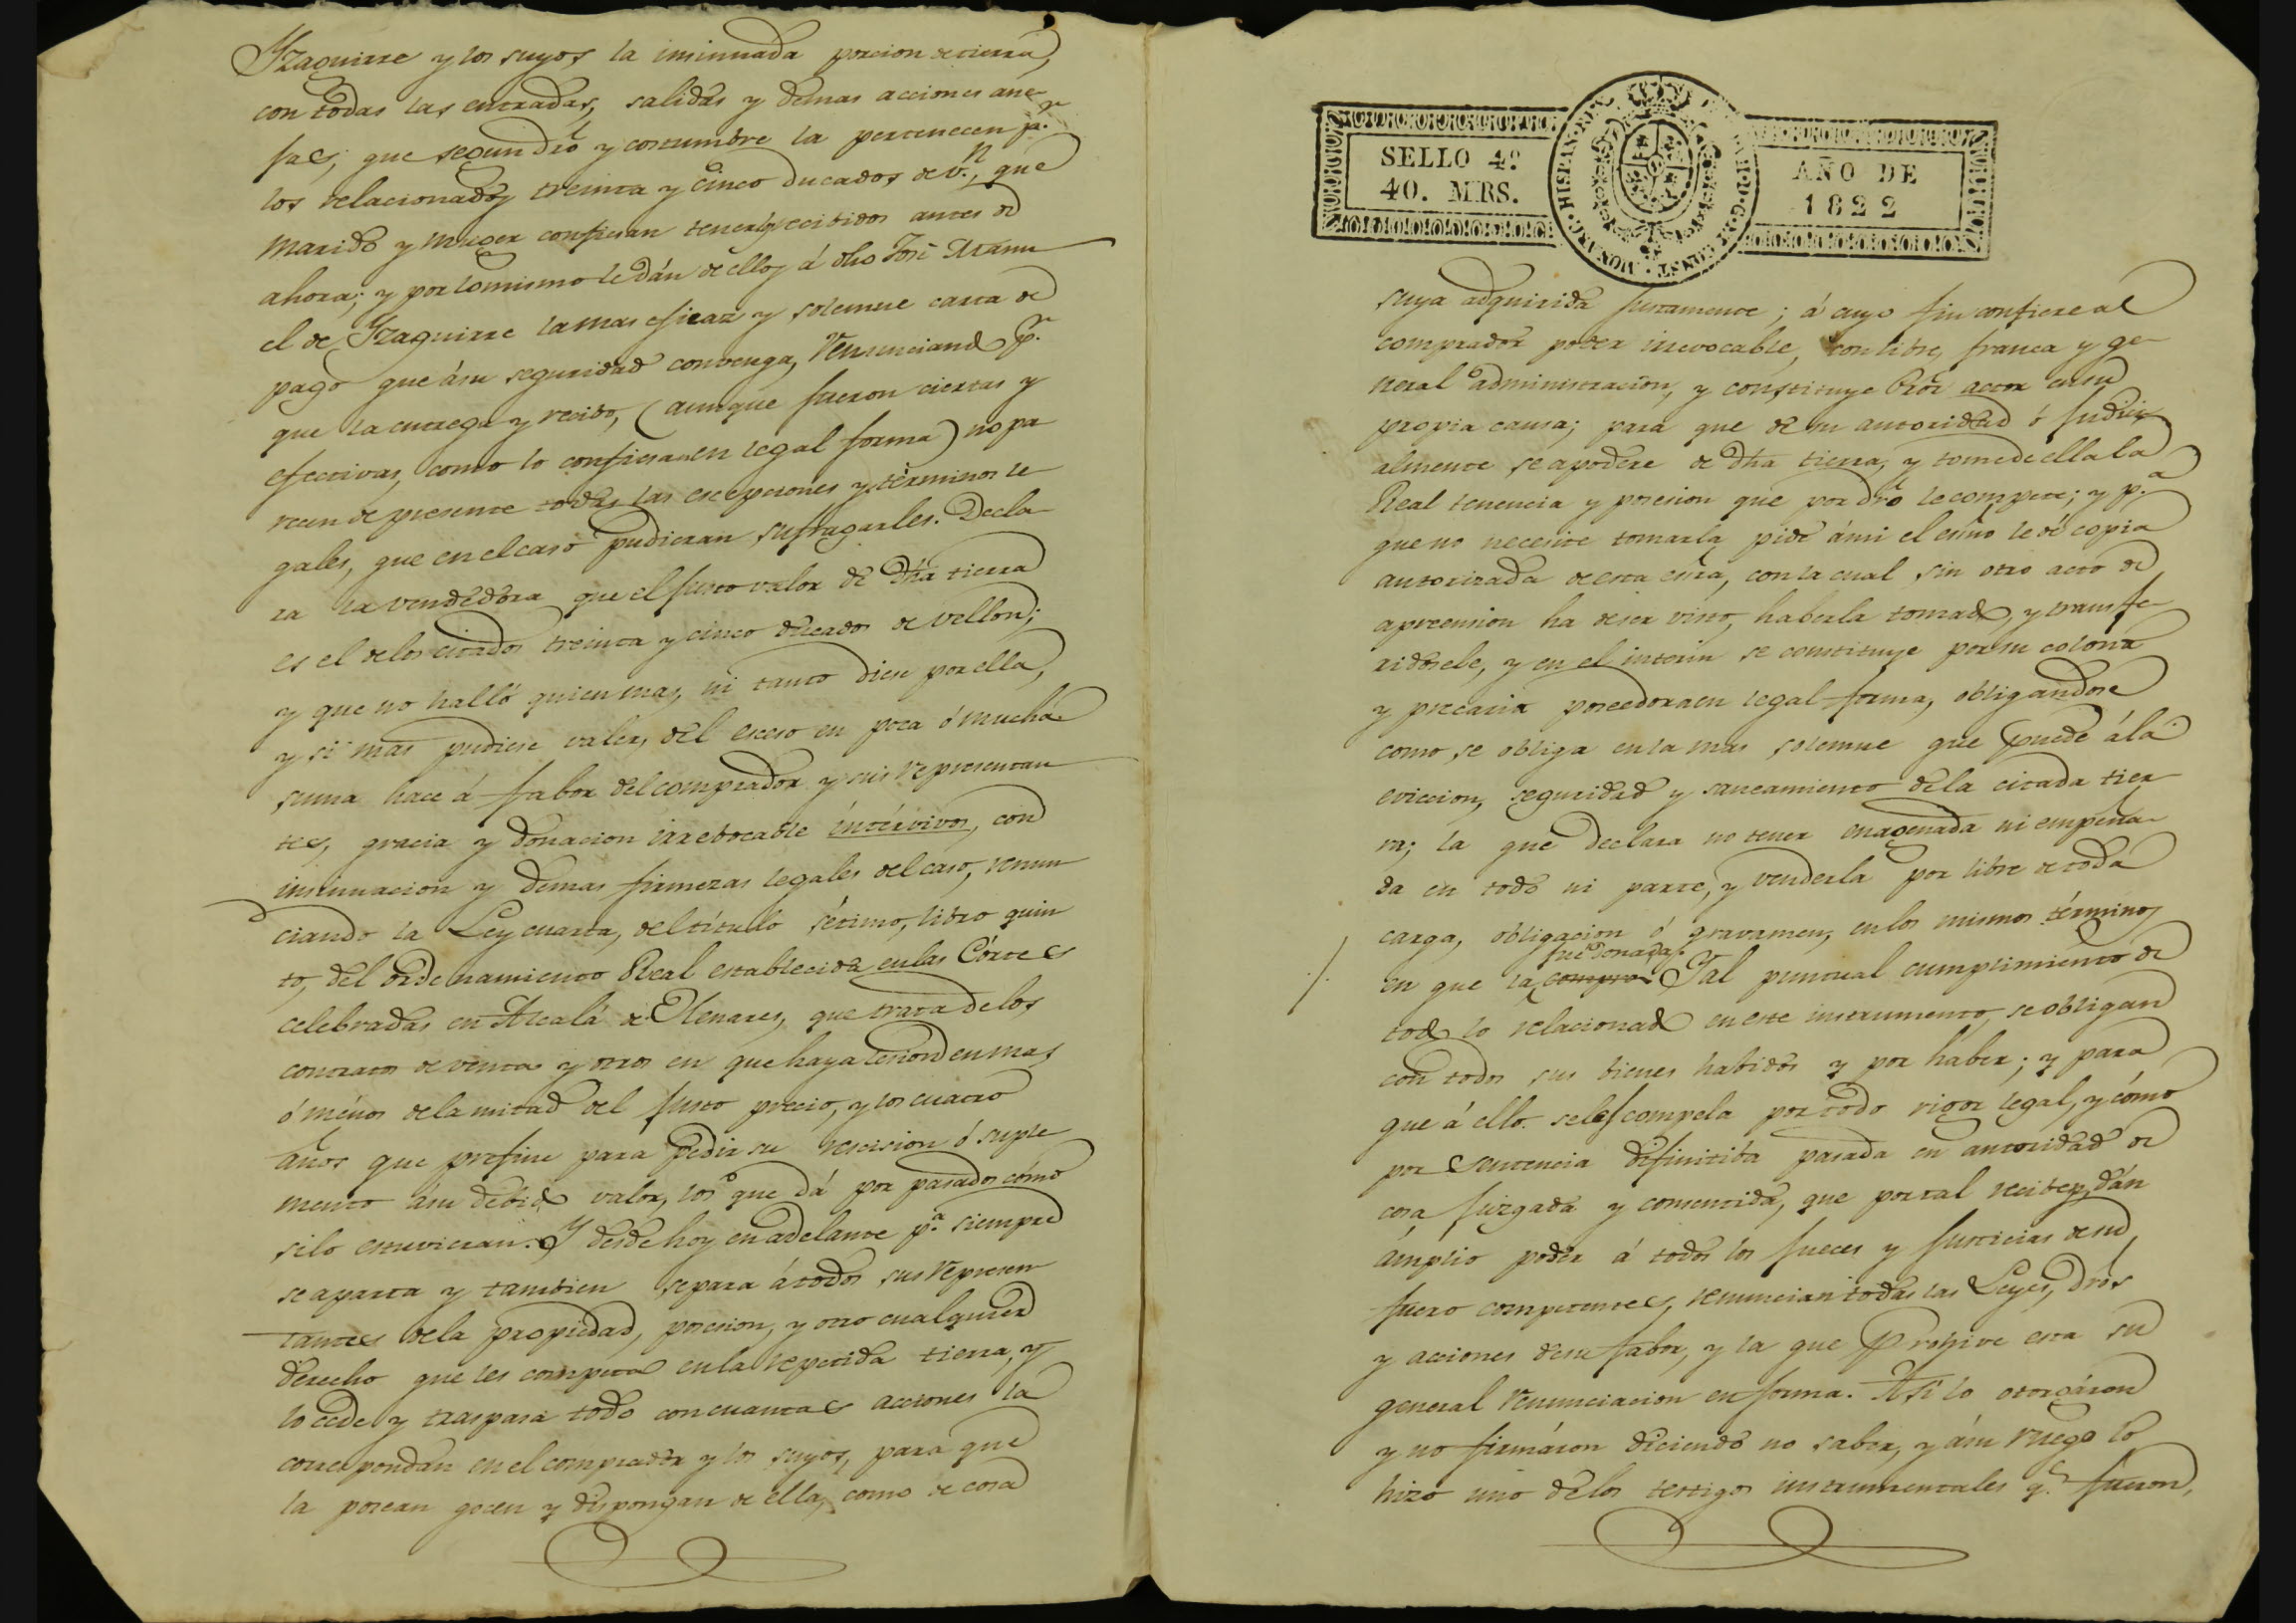 Yzaguirre y los suyos la insinuada porcion de tierra,
con todas las entradas, salidas y demas acciones ane-
jas, que segun dro y costumbre la pertenecen p.r
los relacionados treinta y cinco ducados de v.n, que
marido y muger confiesan tener recibidos antes de
ahora; y por lo mismo le dán de ellos á dho José Manu
el de Yzaguirre la mas eficaz y solemne carta de
pago que á su seguridad convenga, Renunciando p.r
que la entrega y recibo, (aunque fueron ciertas y
efectivas, como lo confiesan en legal forma) no pa
recen de presente todas las escepciones y términos le
gales, que en el caso pudieran sufragarles. Decla
ra la vendedora que el justo valor de dha tierra
es el de los citados treinta y cinco ducados de vellon;
y que no halló quien mas, ni tanto diese por ella,
y si mas pudiese valer, del esceso en poca ó mucha
suma hace á fabor del comprador y sus representan
tes, gracia y donacion irrebocable íntervivos, con
insinuacion y demas firmezas legales del caso, renun
ciando la Ley cuarta, del título sétimo, libro quin
to, del ordenamiento Real establecida en las Córtes
celebradas en Alcalá de Henares, que trata de los
contratos de venta y otros en que haya lesion en mas
ó ménos de la mitad del justo precio, y los cuatro
años que prefine para pedir su rescision ó suple
mento á su debido valor, los que dá por pasados cómo
si lo estuvieran. Y desde hoy en adelante p.a siempre
se aparta y tambien separa á todos sus represen
tantes de la propiedad, posesion, y otro cualquier
derecho que les competa en la repetida tierra, y
lo cede y traspasa todo con cuantas acciones la
correspondan en el comprador y los suyos, para que
la posean gocen y dispongan de ella, como de cosa
SELLO 4º
40. MRS.
AÑO DE
1822
suya adquirida justamente; á cuyo fin confiere al
comprador poder irrevocable, con libre, franca y ge-
neral administracion, y constituye Pror actor en su
propia causa; para que de su autoridad ó judici
almente se apodere de dha tierra, y tome de ella la
Real tenencia y posesion que por dro le compete; y p.a
que no necesite tomarla pide á mi el esno le dé copia
autorizada de esta esra, con la cual sin otro acto de
aprension ha de ser visto, haberla tomado, y transfe-
ridosele, y en el interin se constituye por su colona
y precaria poseedora en legal forma, obligandose
como se obliga en la mas solemne que puede á la
eviccion, seguridad y saneamiento de la citada tier
ra; la que declara no tener enagenada ni empeña-
da en todo ni parte, y venderla por libre de toda
carga, obligacion ó gravamen, en los mismos términos
fué donada.
en que la compro. Y al puntual cumplimiento de
todo lo relacionado en este instrumento, se obligan
con todos sus bienes habidos y por haber; y para
que á ello se les compela por todo rigor legal, y cómo
por sentencia difinitiba pasada en autoridad de
cosa juzgada y consentida, que por tal reciben, dán
ámplio poder á todos los jueces y justicias de su
fuero competentes, renuncian todas las Leyes, dros
y acciones de su fabor, y la que Prohive esta su
general renunciacion en forma. Asi lo otorgáron
y no firmáron diciendo no saber, y á su ruego lo
hizo uno de los testigos instrumentales q.e fueron,